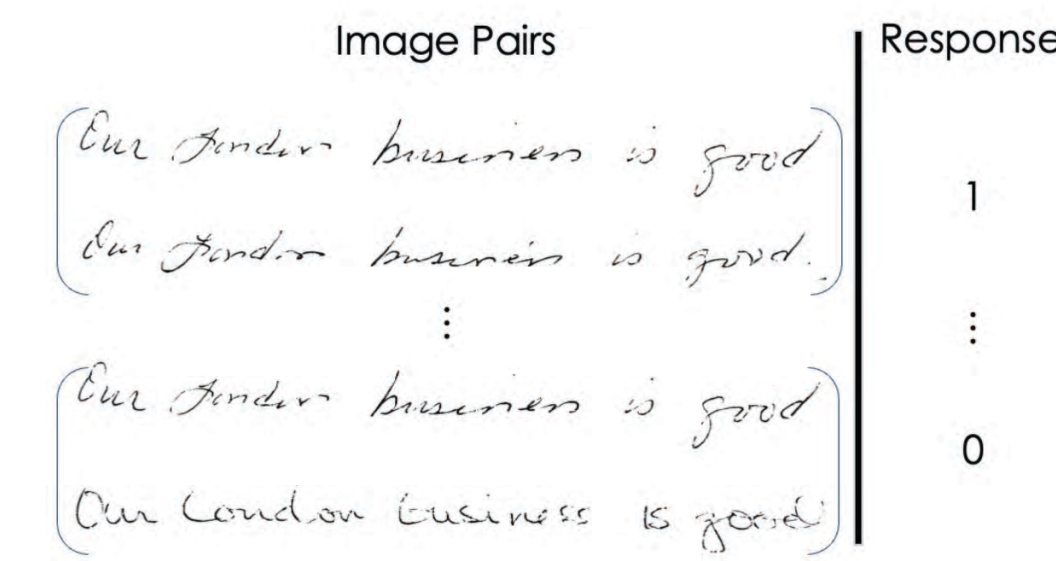 Image Pairs
Response
Our London business is good
1
Our London business is good.
⋮
⋮
Our London business is good
0
Our London business is good